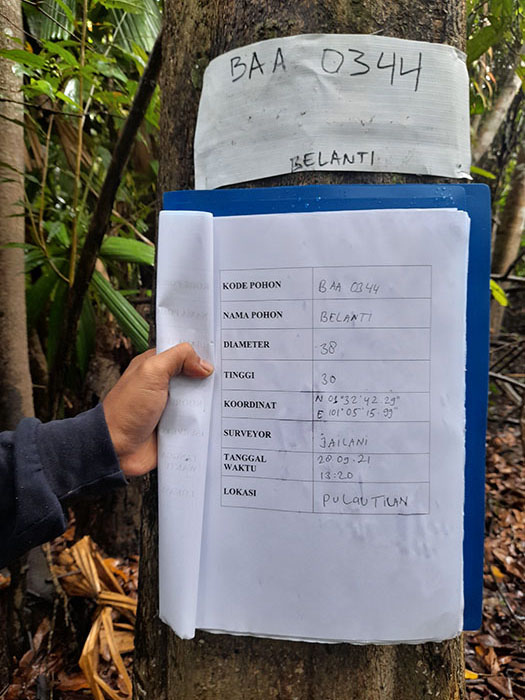 BAA 0344
BELANTI
KODE POHON BAA 0344
NAMA POHON BELANTI
DIAMETER 38
TINGGI 30
KOORDINAT N 01°32'42.29"
E 101°05'15.99"
SURVEYOR JAILANI
TANGGAL 28.09.21
WAKTU 13.20
LOKASI PULAU TILAN